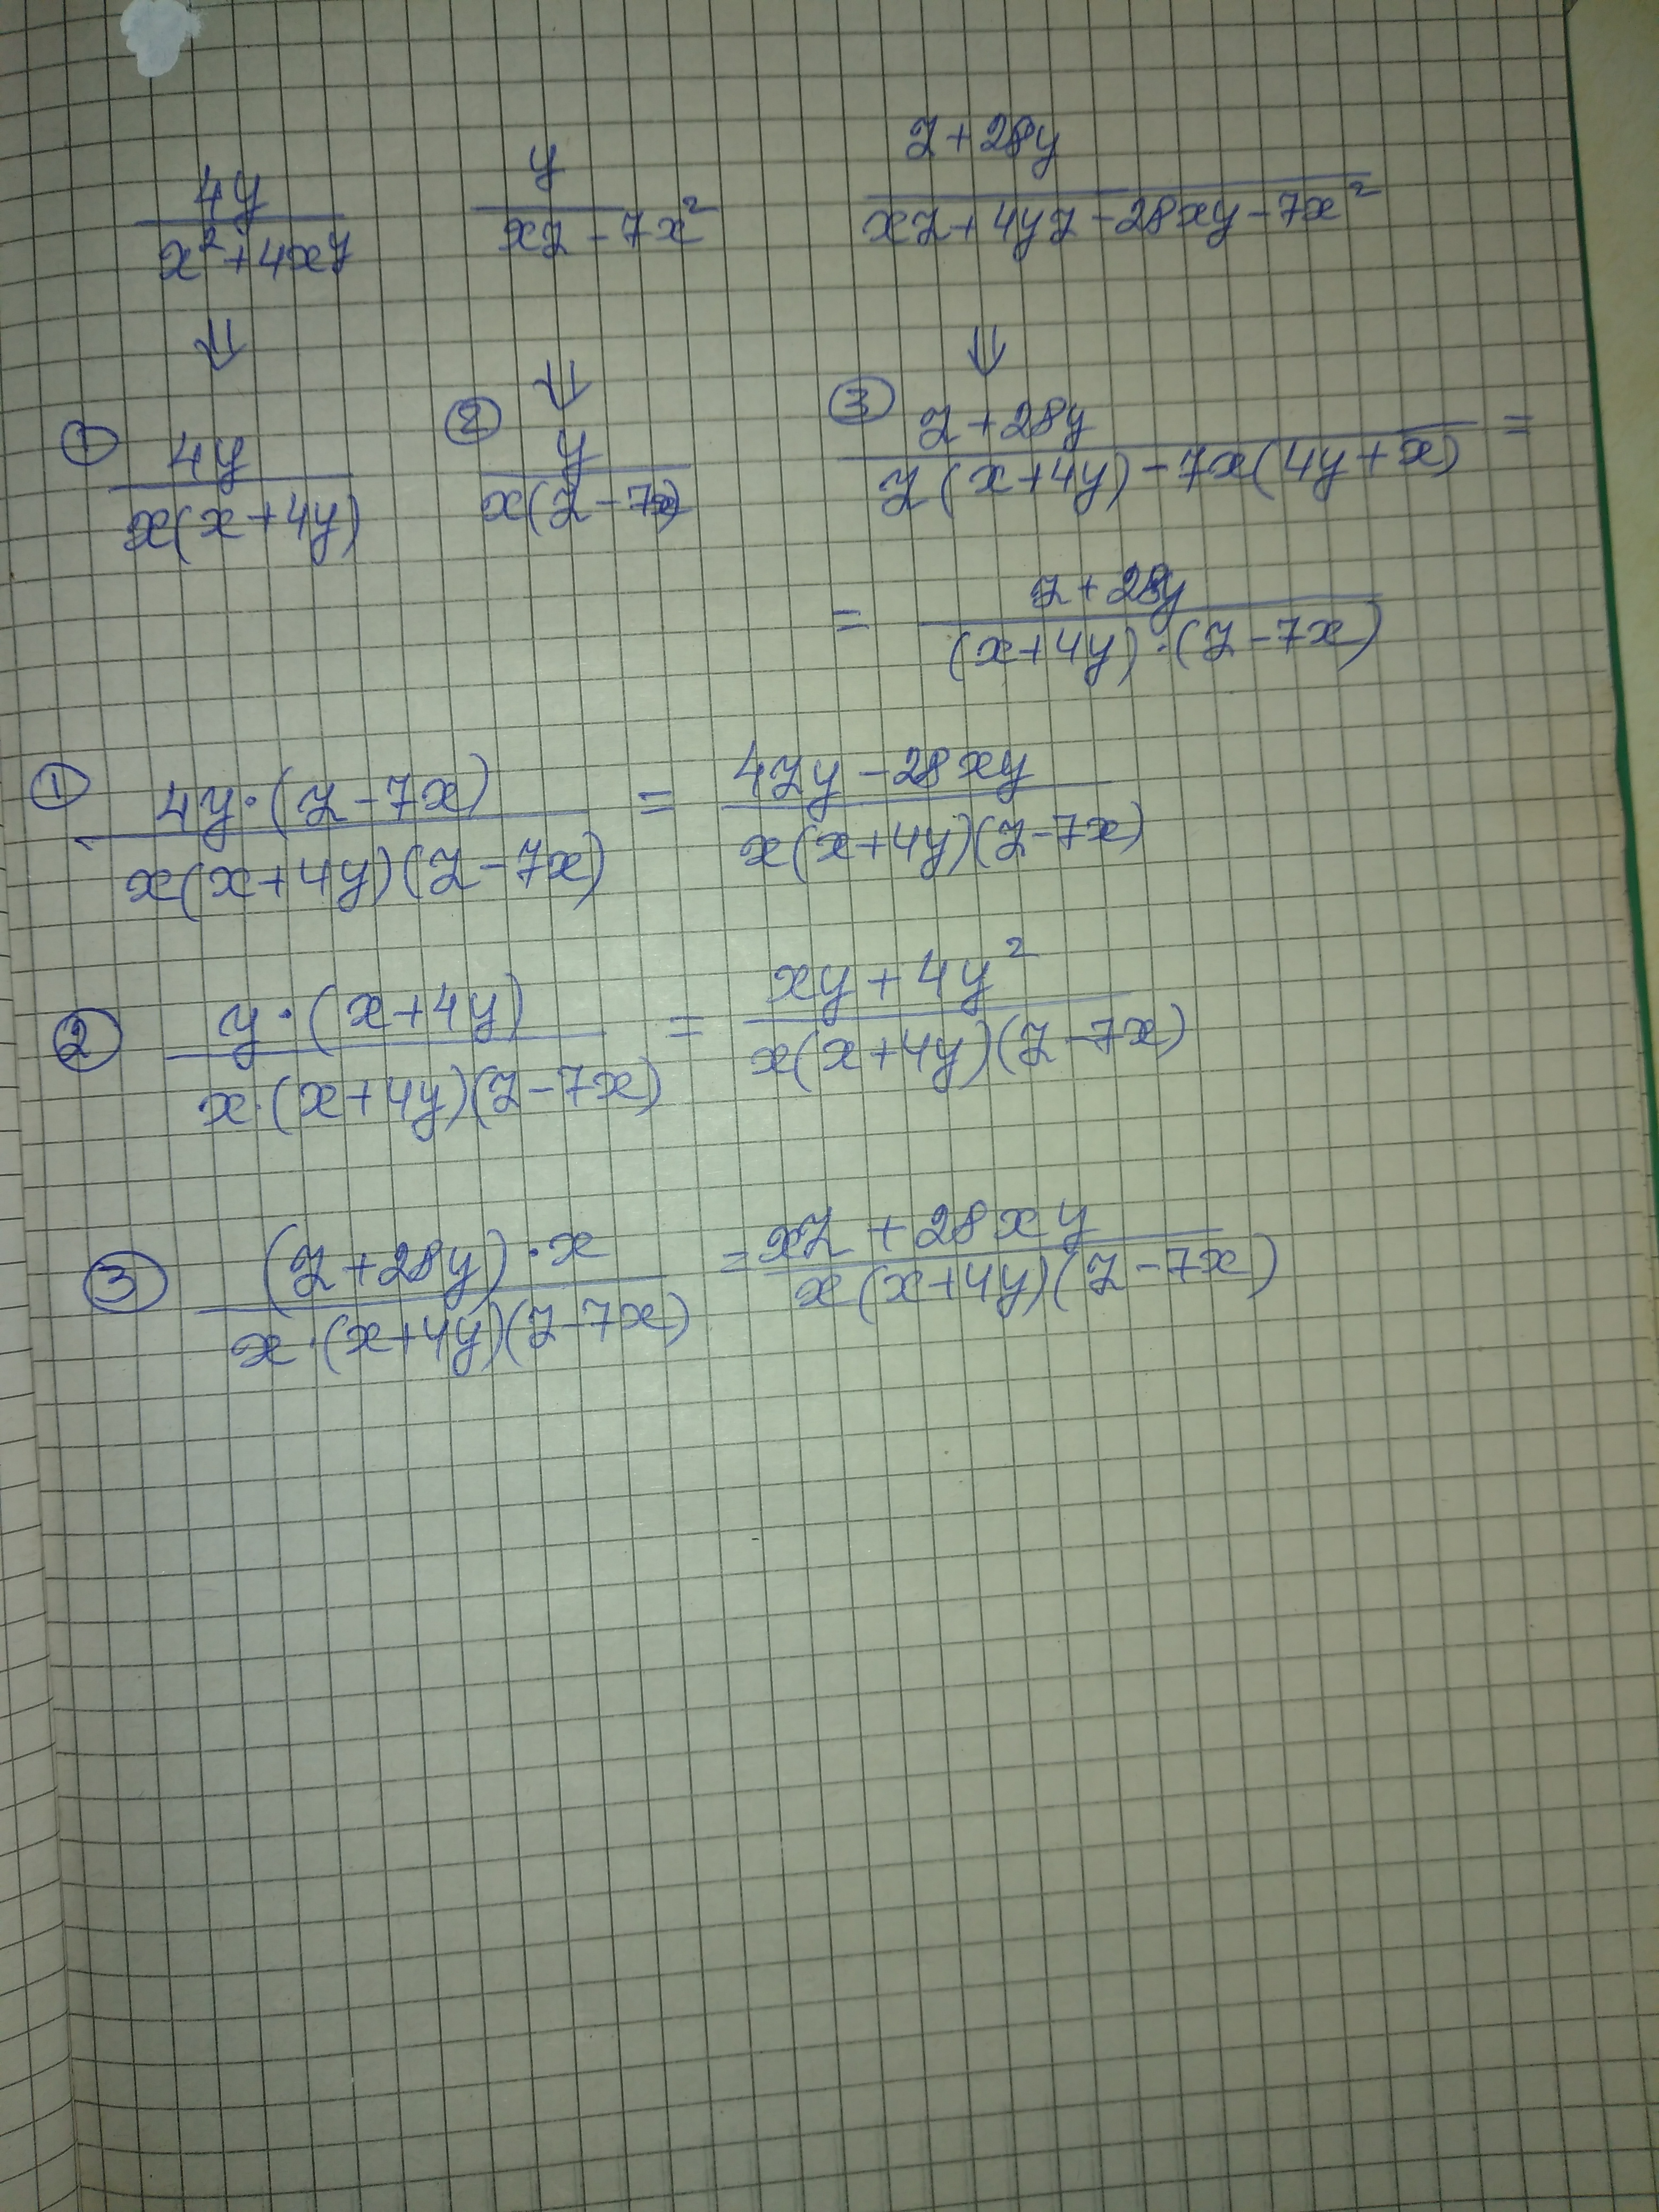 4y/(x²+4xy)   y/(xz-7x²)   (z+28y)/(xz+4yz-28xy-7x²)
⇓   ⇓   ⇓
① 4y/(x(x+4y))   ② y/(x(z-7x))   ③ (z+28y)/(z(x+4y)-7x(4y+x)) =
= (z+28y)/((x+4y)·(z-7x))
① (4y·(z-7x))/(x(x+4y)(z-7x)) = (4zy-28xy)/(x(x+4y)(z-7x))
② (y·(x+4y))/(x·(x+4y)(z-7x)) = (xy+4y²)/(x(x+4y)(z-7x))
③ ((z+28y)·x)/(x·(x+4y)(z-7x)) = (xz+28xy)/(x(x+4y)(z-7x))